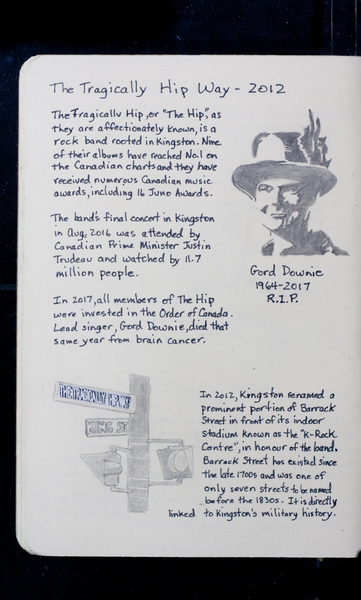 The Tragically Hip Way - 2012
The Tragically Hip, or "The Hip", as
they are affectionately known, is a
rock band rooted in Kingston. Nine
of their albums have reached No.1 on
the Canadian charts and they have
received numerous Canadian music
awards, including 16 Juno Awards.
The band's final concert in Kingston
in Aug. 2016 was attended by
Canadian Prime Minister Justin
Trudeau and watched by 11.7
million people.
Gord Downie
1964-2017
R.I.P.
In 2017, all members of The Hip
were invested in the Order of Canada.
Lead singer, Gord Downie, died that
same year from brain cancer.
THE TRAGICALLY HIP WAY
KING ST
In 2012, Kingston renamed a
prominent portion of Barrack
Street in front of its indoor
stadium known as the "K-Rock
Centre", in honour of the band.
Barrack Street has existed since
the late 1700s and was one of
only seven streets to be named
before the 1830s. It is directly
linked to Kingston's military history.